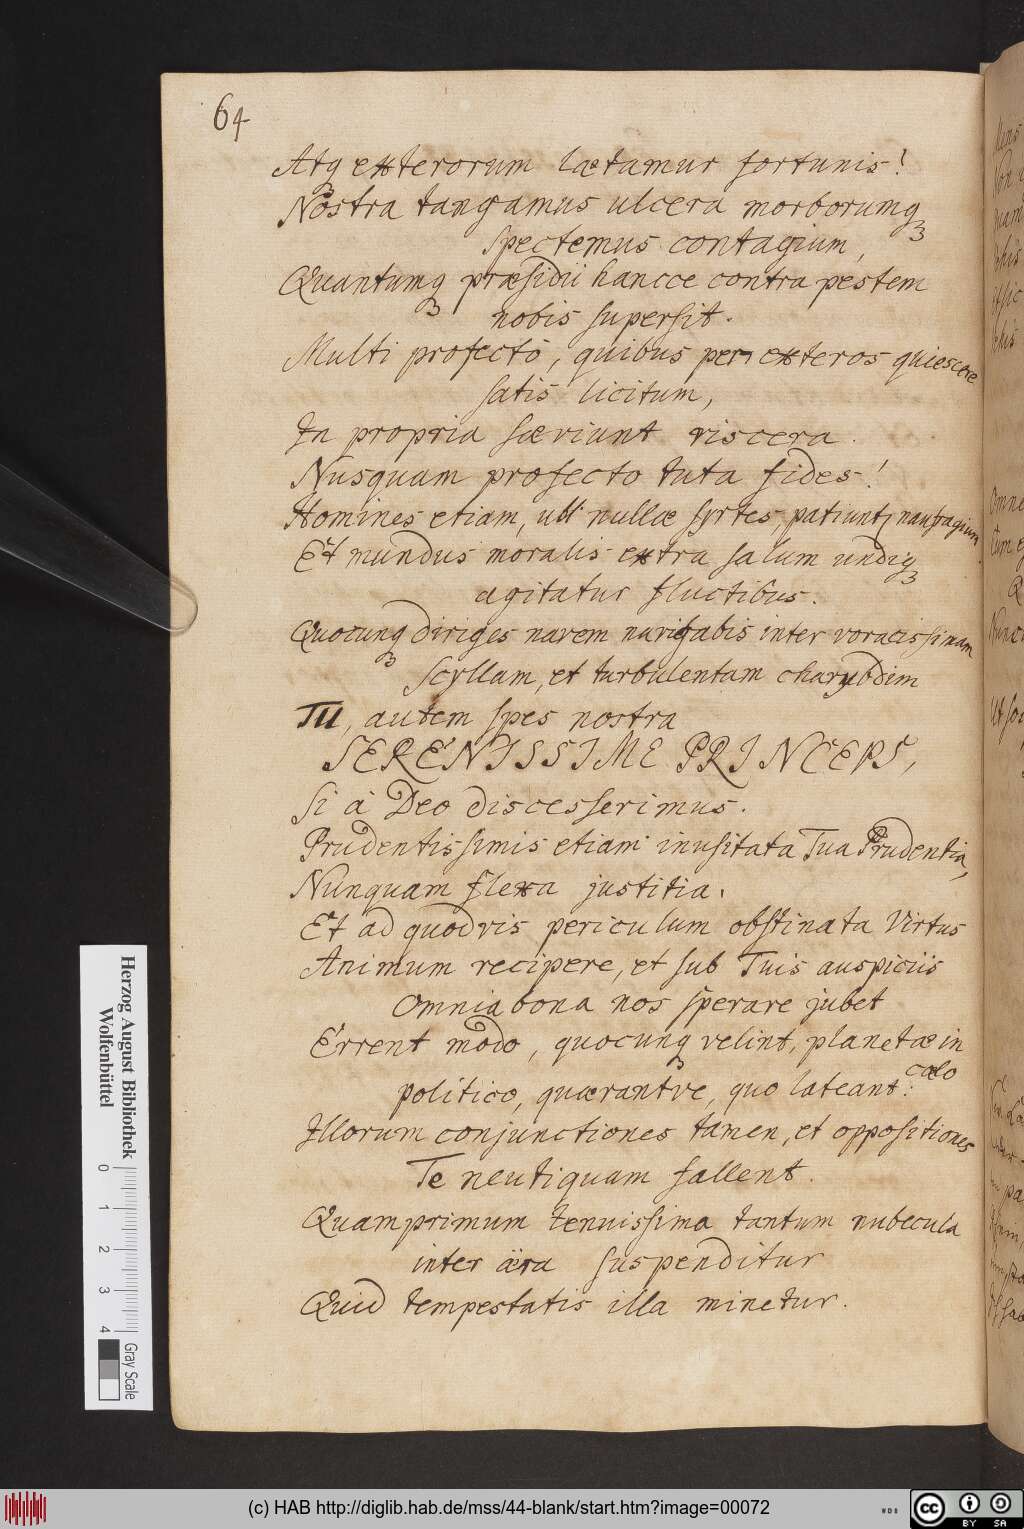 64
Atq3 exterorum lætamur fortunis!
Nostra tangamus ulcera morborumq3
spectemus contagium,
Quantumq3 præsidii hancce contra pestem
nobis supersit.
Multi profectò, quibus per exteros quiescere
satis licitum,
In propria sæviunt viscera.
Nusquam profecto tuta fides!
Homines etiam, ubi nullæ syrtes, patiuntʒ naufragium
Et mundus moralis extra salum undiq3
agitatur fluctibus.
Quocunq3 diriges navem navigabis inter voracissimam
Scyllam, et turbulentam charybdim
TU, autem spes nostra
SERENISSIME PRINCEPS,
Si à Deo discesserimus.
Prudentissimis etiam inusitata Tua Prudentia,
Nunquam flexa justitia.
Et ad quodvis periculum obstinata Virtus
Animum recipere, et sub Tuis auspiciis
Omnia bona nos sperare jubet
Errent modo, quocunq3 velint, planetæ in
cælo
politico, quærantve, quo lateant:
Illorum conjunctiones tamen, et oppositiones
Te neutiquam fallent.
Quamprimum tenuissima tantum nubecula
inter aëra suspenditur
Quid tempestatis illa minetur.
Herzog August Bibliothek
Wolfenbüttel
0 1 2 3 4
Gray Scale
(c) HAB http://diglib.hab.de/mss/44-blank/start.htm?image=00072
WDB
cc BY SA